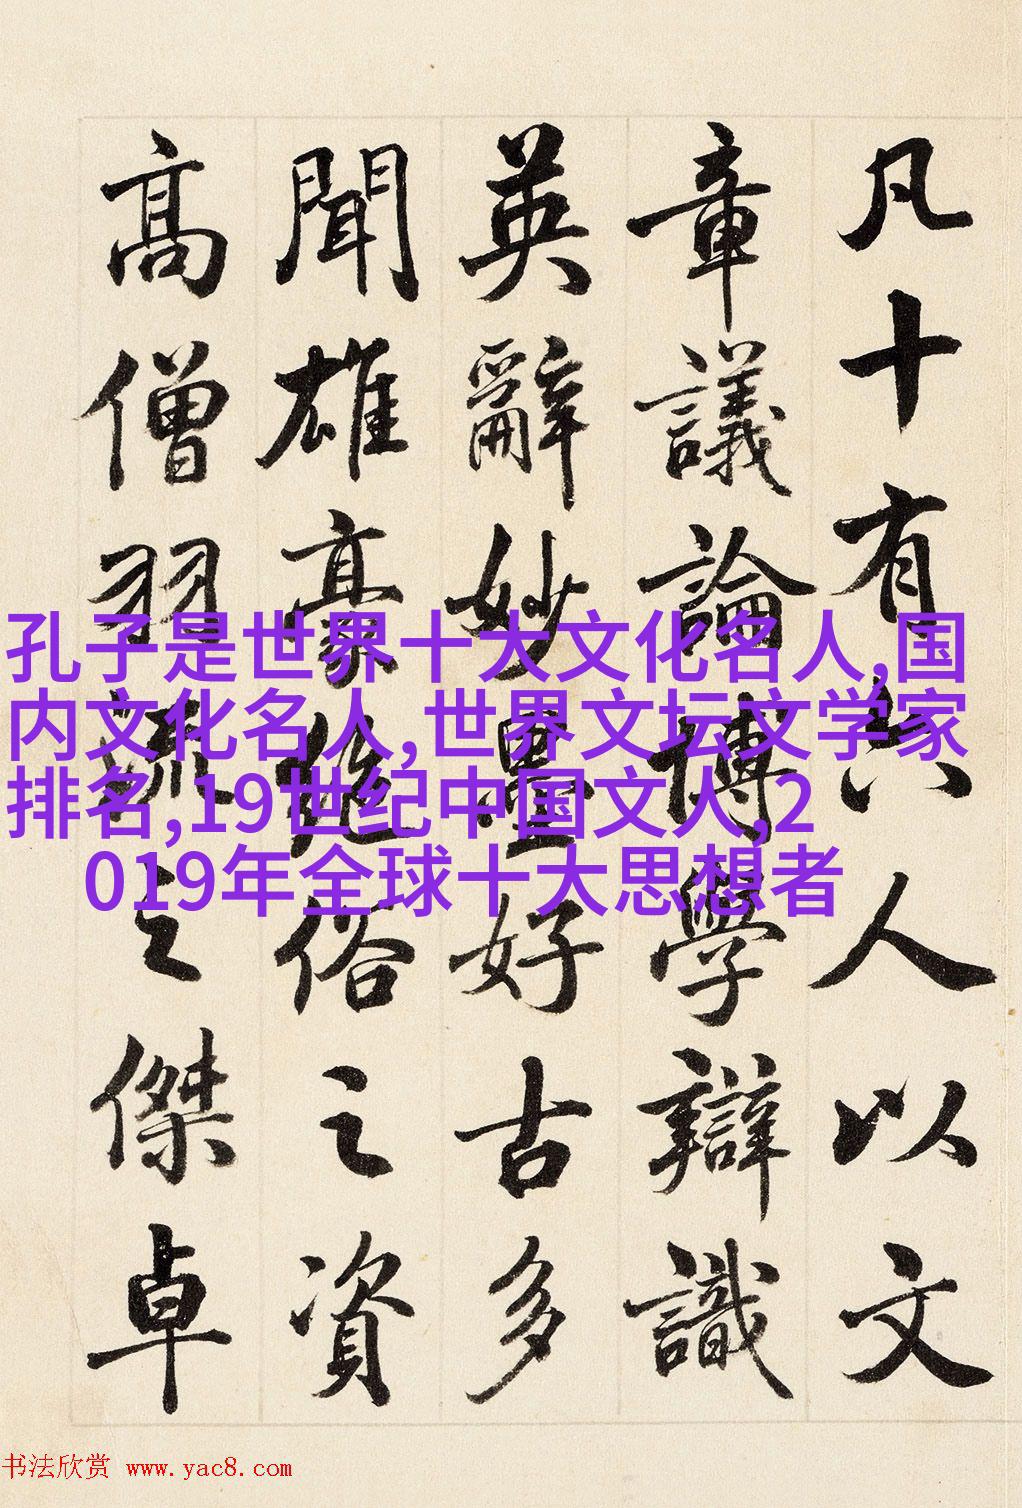 凡十有六人以文
章議論博學辯識
英辭妙墨好古多
聞雄豪絕俗之資
高僧羽流之傑卓
孔子是世界十大文化名人,国
内文化名人,世界文坛文学家
排名,19世纪中国文人,2
019年全球十大思想者
书法欣赏 www.yac8.com